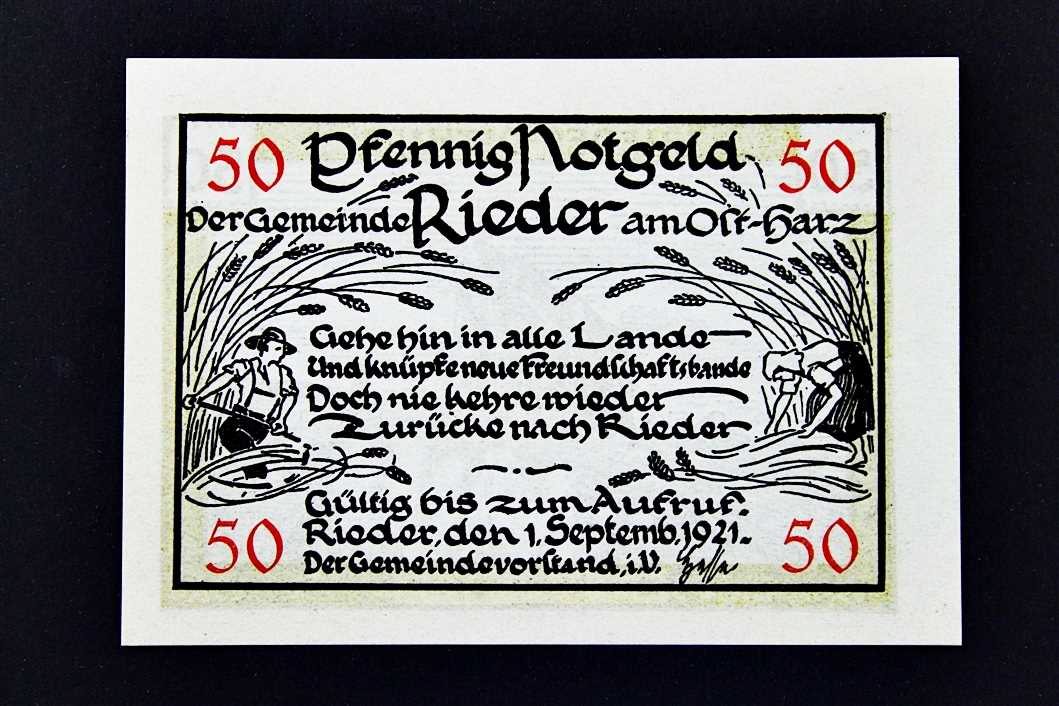 50 Pfennig Notgeld 50
Der Gemeinde Rieder am Ost-Harz
Gehe hin in alle Lande
Und knüpfe neue Freundschaftsbande
Doch nie kehre wieder
Zurücke nach Rieder
Gültig bis zum Aufruf.
Rieder, den 1. Septemb. 1921.
50 Der Gemeindevorstand, i.V. Hesse 50